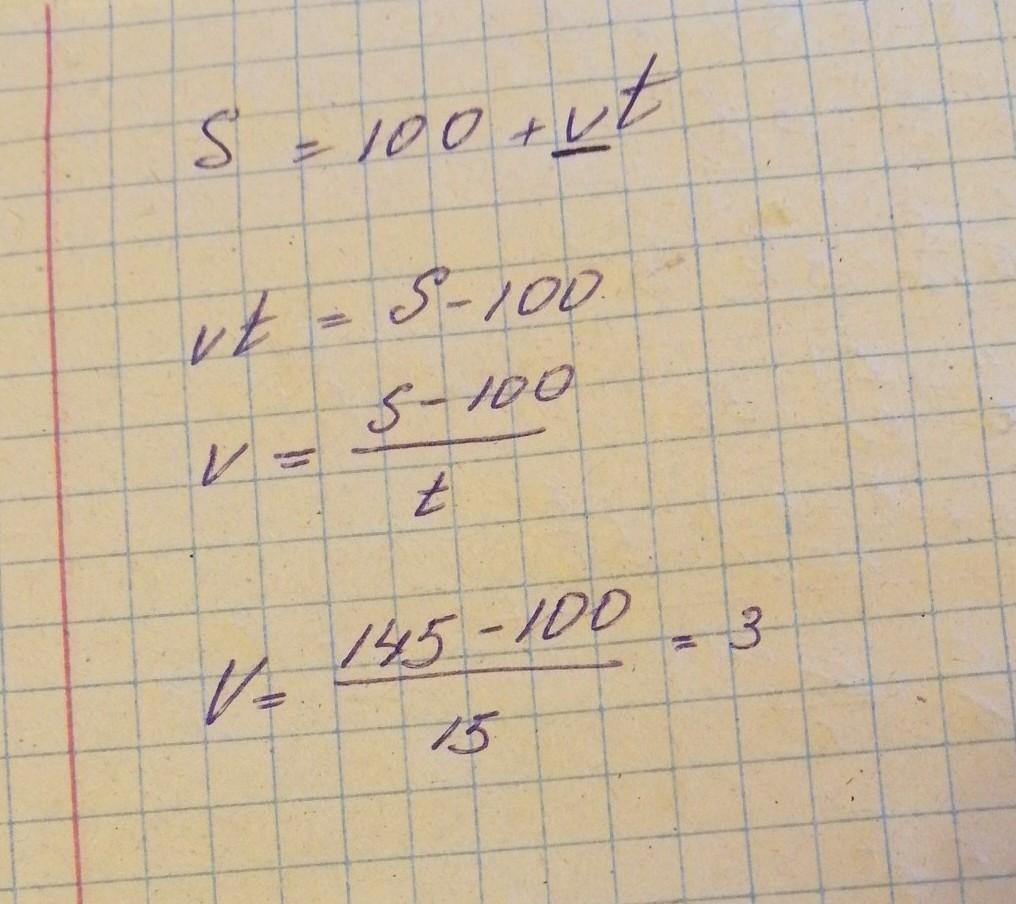 S = 100 + vt
vt = S - 100
v = (S - 100) / t
V = (145 - 100) / 15 = 3